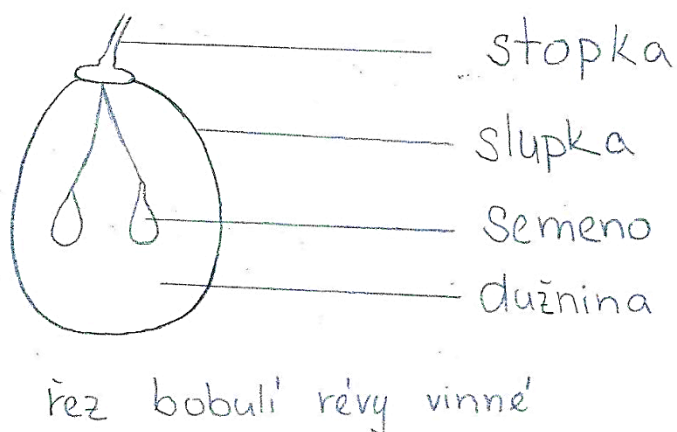 stopka
slupka
semeno
dužnina
řez bobulí révy vinné